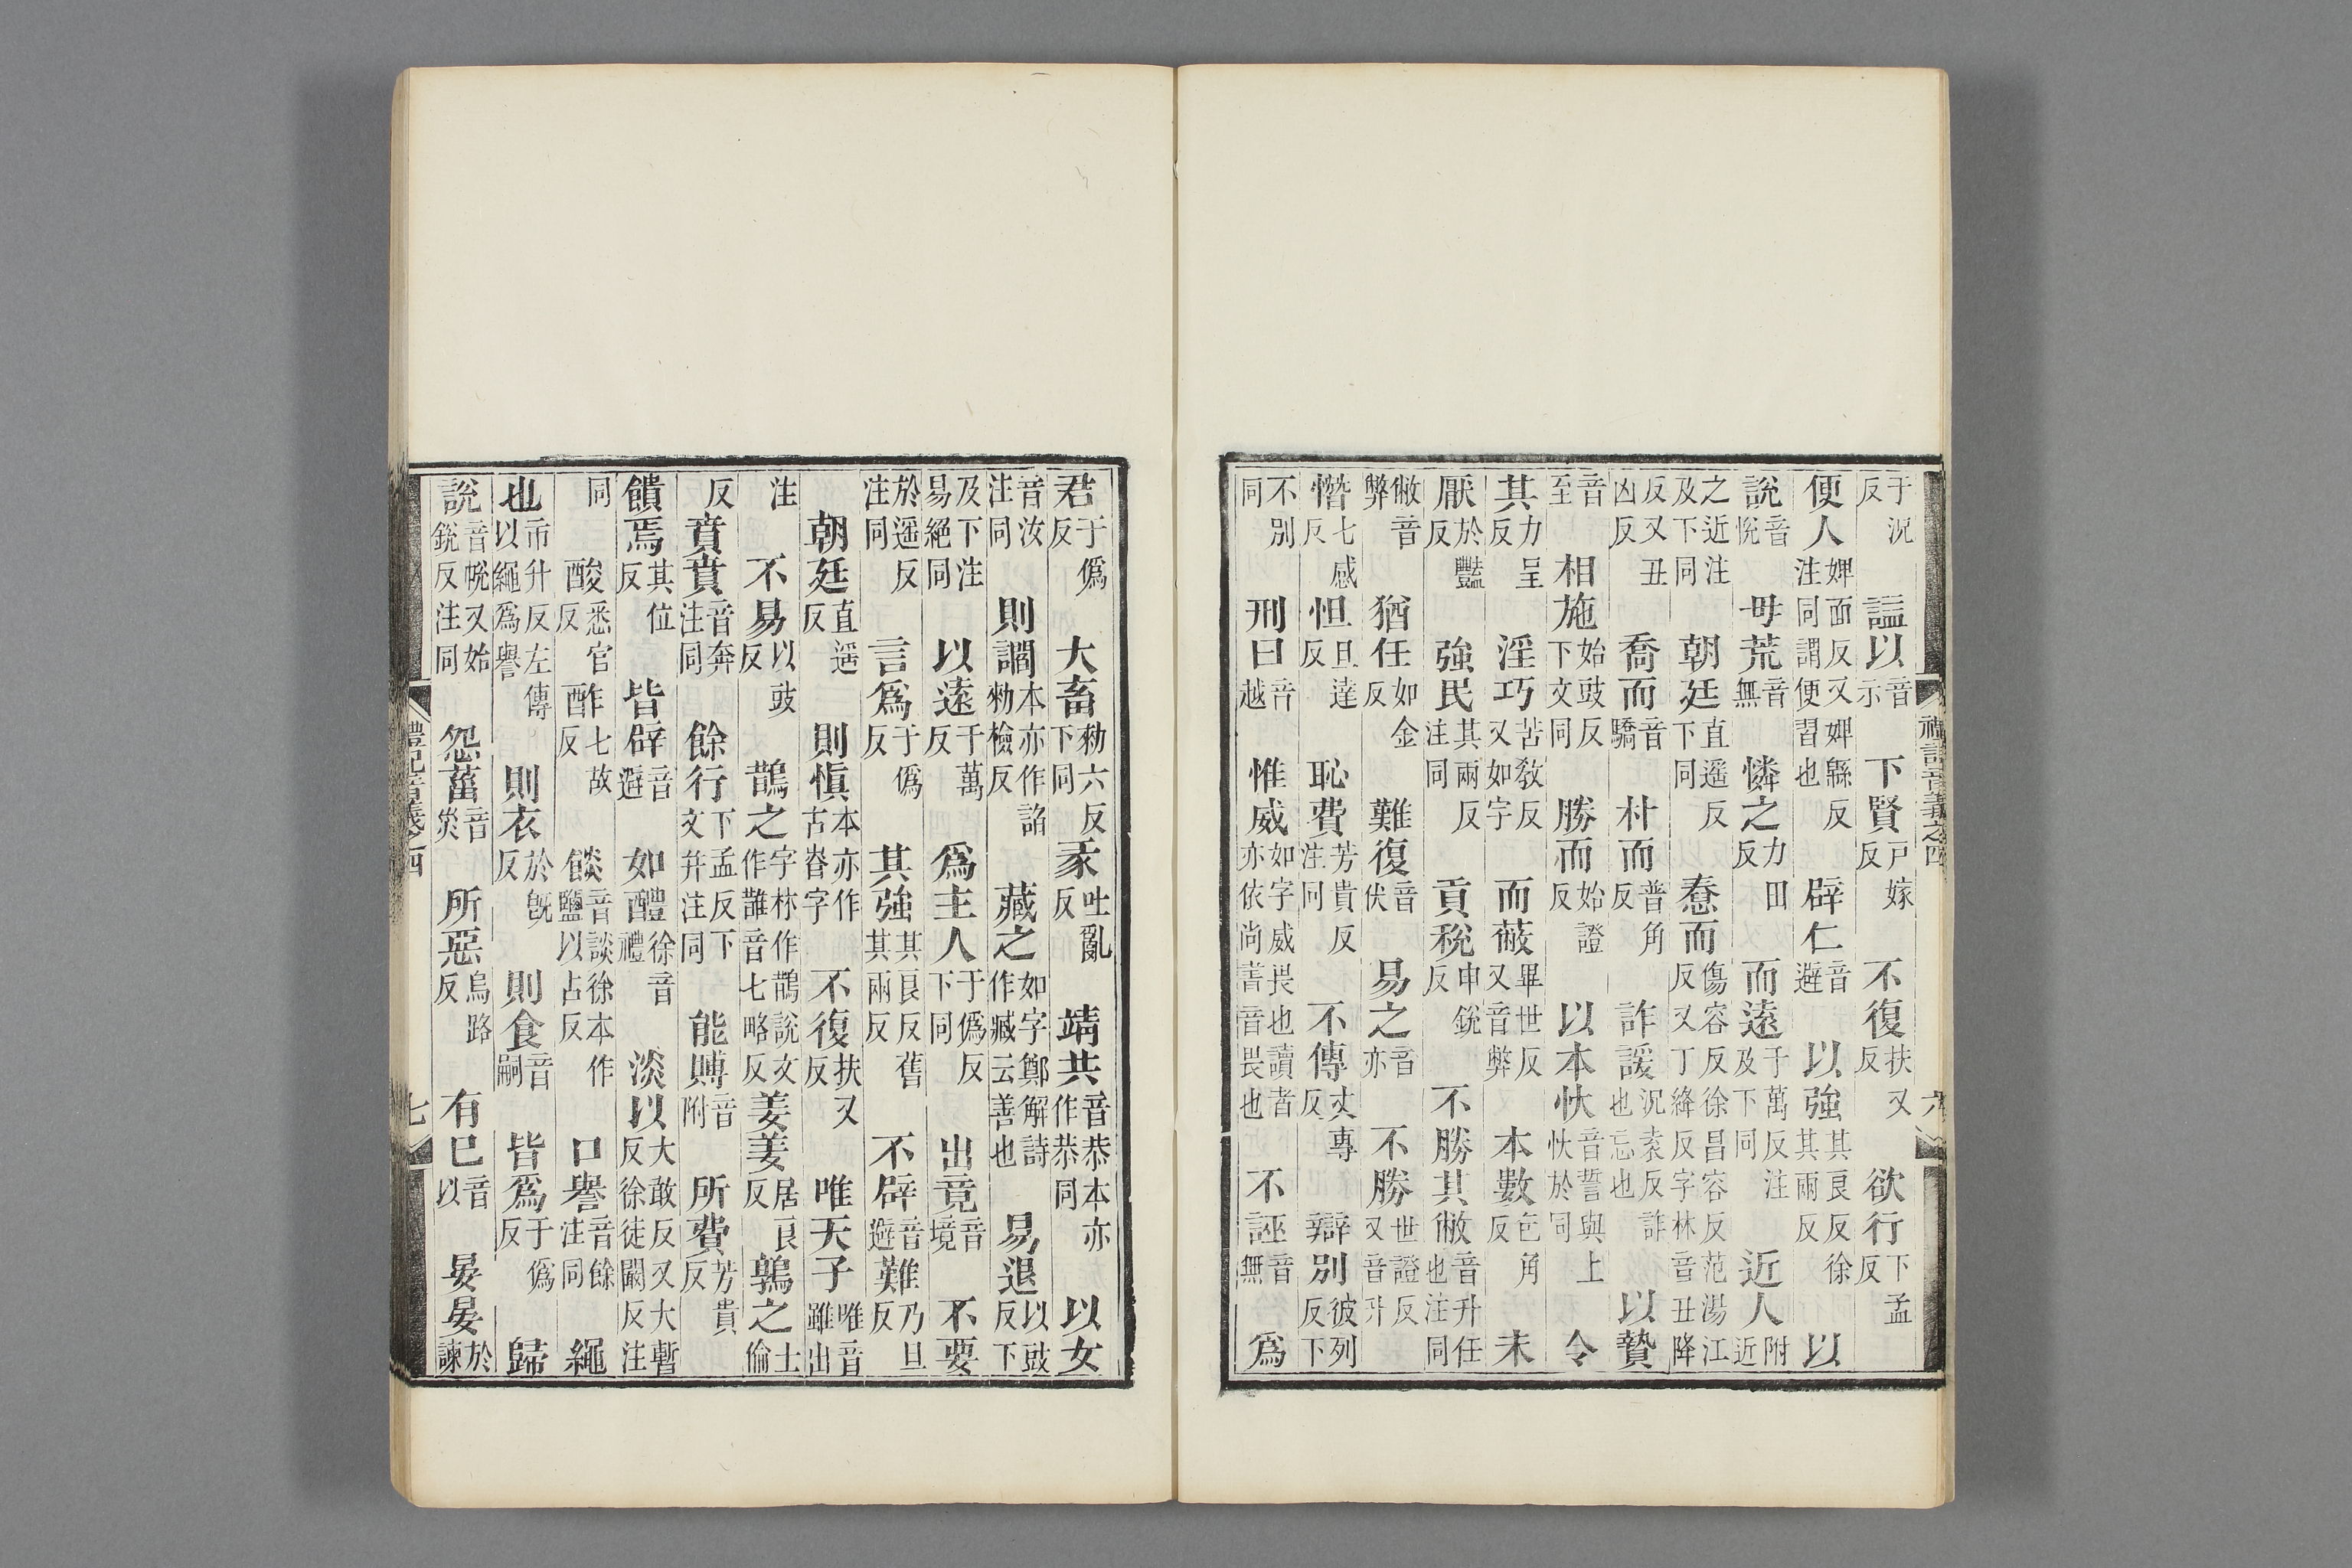 于況反 謚以音示 下賢戸嫁反 不復扶又反 欲行下孟反
便人婢面反又婢緜反注同謂便習也 辟仁音避 以強其良反徐其兩反 以
說音悅 毋荒音無 憐之力田反 而遠于萬反注及下同 近人附近
之近注及下同 朝廷直遥反下同 惷而傷容反徐昌容反范湯江反又丁絳反字林音丑降
反又丑凶反 喬而音驕 朴而普角反 詐諼況袁反詐也忘也 以贄
音至 相施始豉反下文同 勝而始證反 以本忕音誓與上忕於同 令
其力呈反 淫巧苦敎反又如字 而蔽畢世反又音弊 本數色角反 未
厭於豔反 強民其兩反注同 貢稅申銳反 不勝其敝音升任也注同
敝音弊 猶任如金反 難復音伏 易之音亦 不勝世證反又音升
憯七感反 怛旦達反 恥費芳貴反注同 不傳丈專反 辯別彼列反下
不別同 刑曰音越 惟威如字威畏也讀者亦依尚書音畏也 不誣音無 爲
禮記音義之四 六
君于僞反 大畜勑六反下同 彖吐亂反 靖共音恭本亦作恭同 以女
音汝注同 則讇本亦作諂勑檢反 藏之如字鄭解詩作臧云善也 易退以豉反下
及下注易絕同 以遠于萬反 爲主人于僞反下同 出竟音境 不要
於遥反注同 言爲于僞反 其強其良反舊其兩反 不辟音避 難乃旦反
朝廷直遥反 則愼本亦作古昚字 不復扶又反 唯天子唯音雖出
注 不易以豉反 鵲之字林作䧿說文作䧿音七略反 姜姜居良反 鶉之士倫
反 賁賁音奔注同 餘行下孟反下文并注同 能賻音附 所費芳貴反
饋焉其位反 皆辟音避 如醴徐音禮 淡以大敢反又大暫反徐徒闞反注
同 酸悉官反 酢七故反 餤音談徐本作鹽以占反 口譽音餘注同 繩
也市升反左傳以繩爲譽 則衣於旣反 則食音嗣 皆爲于僞反 歸
說音帨又始銳反注同 怨菑音烖 所惡烏路反 有巳音以 晏晏於諫
禮記音義之四 七